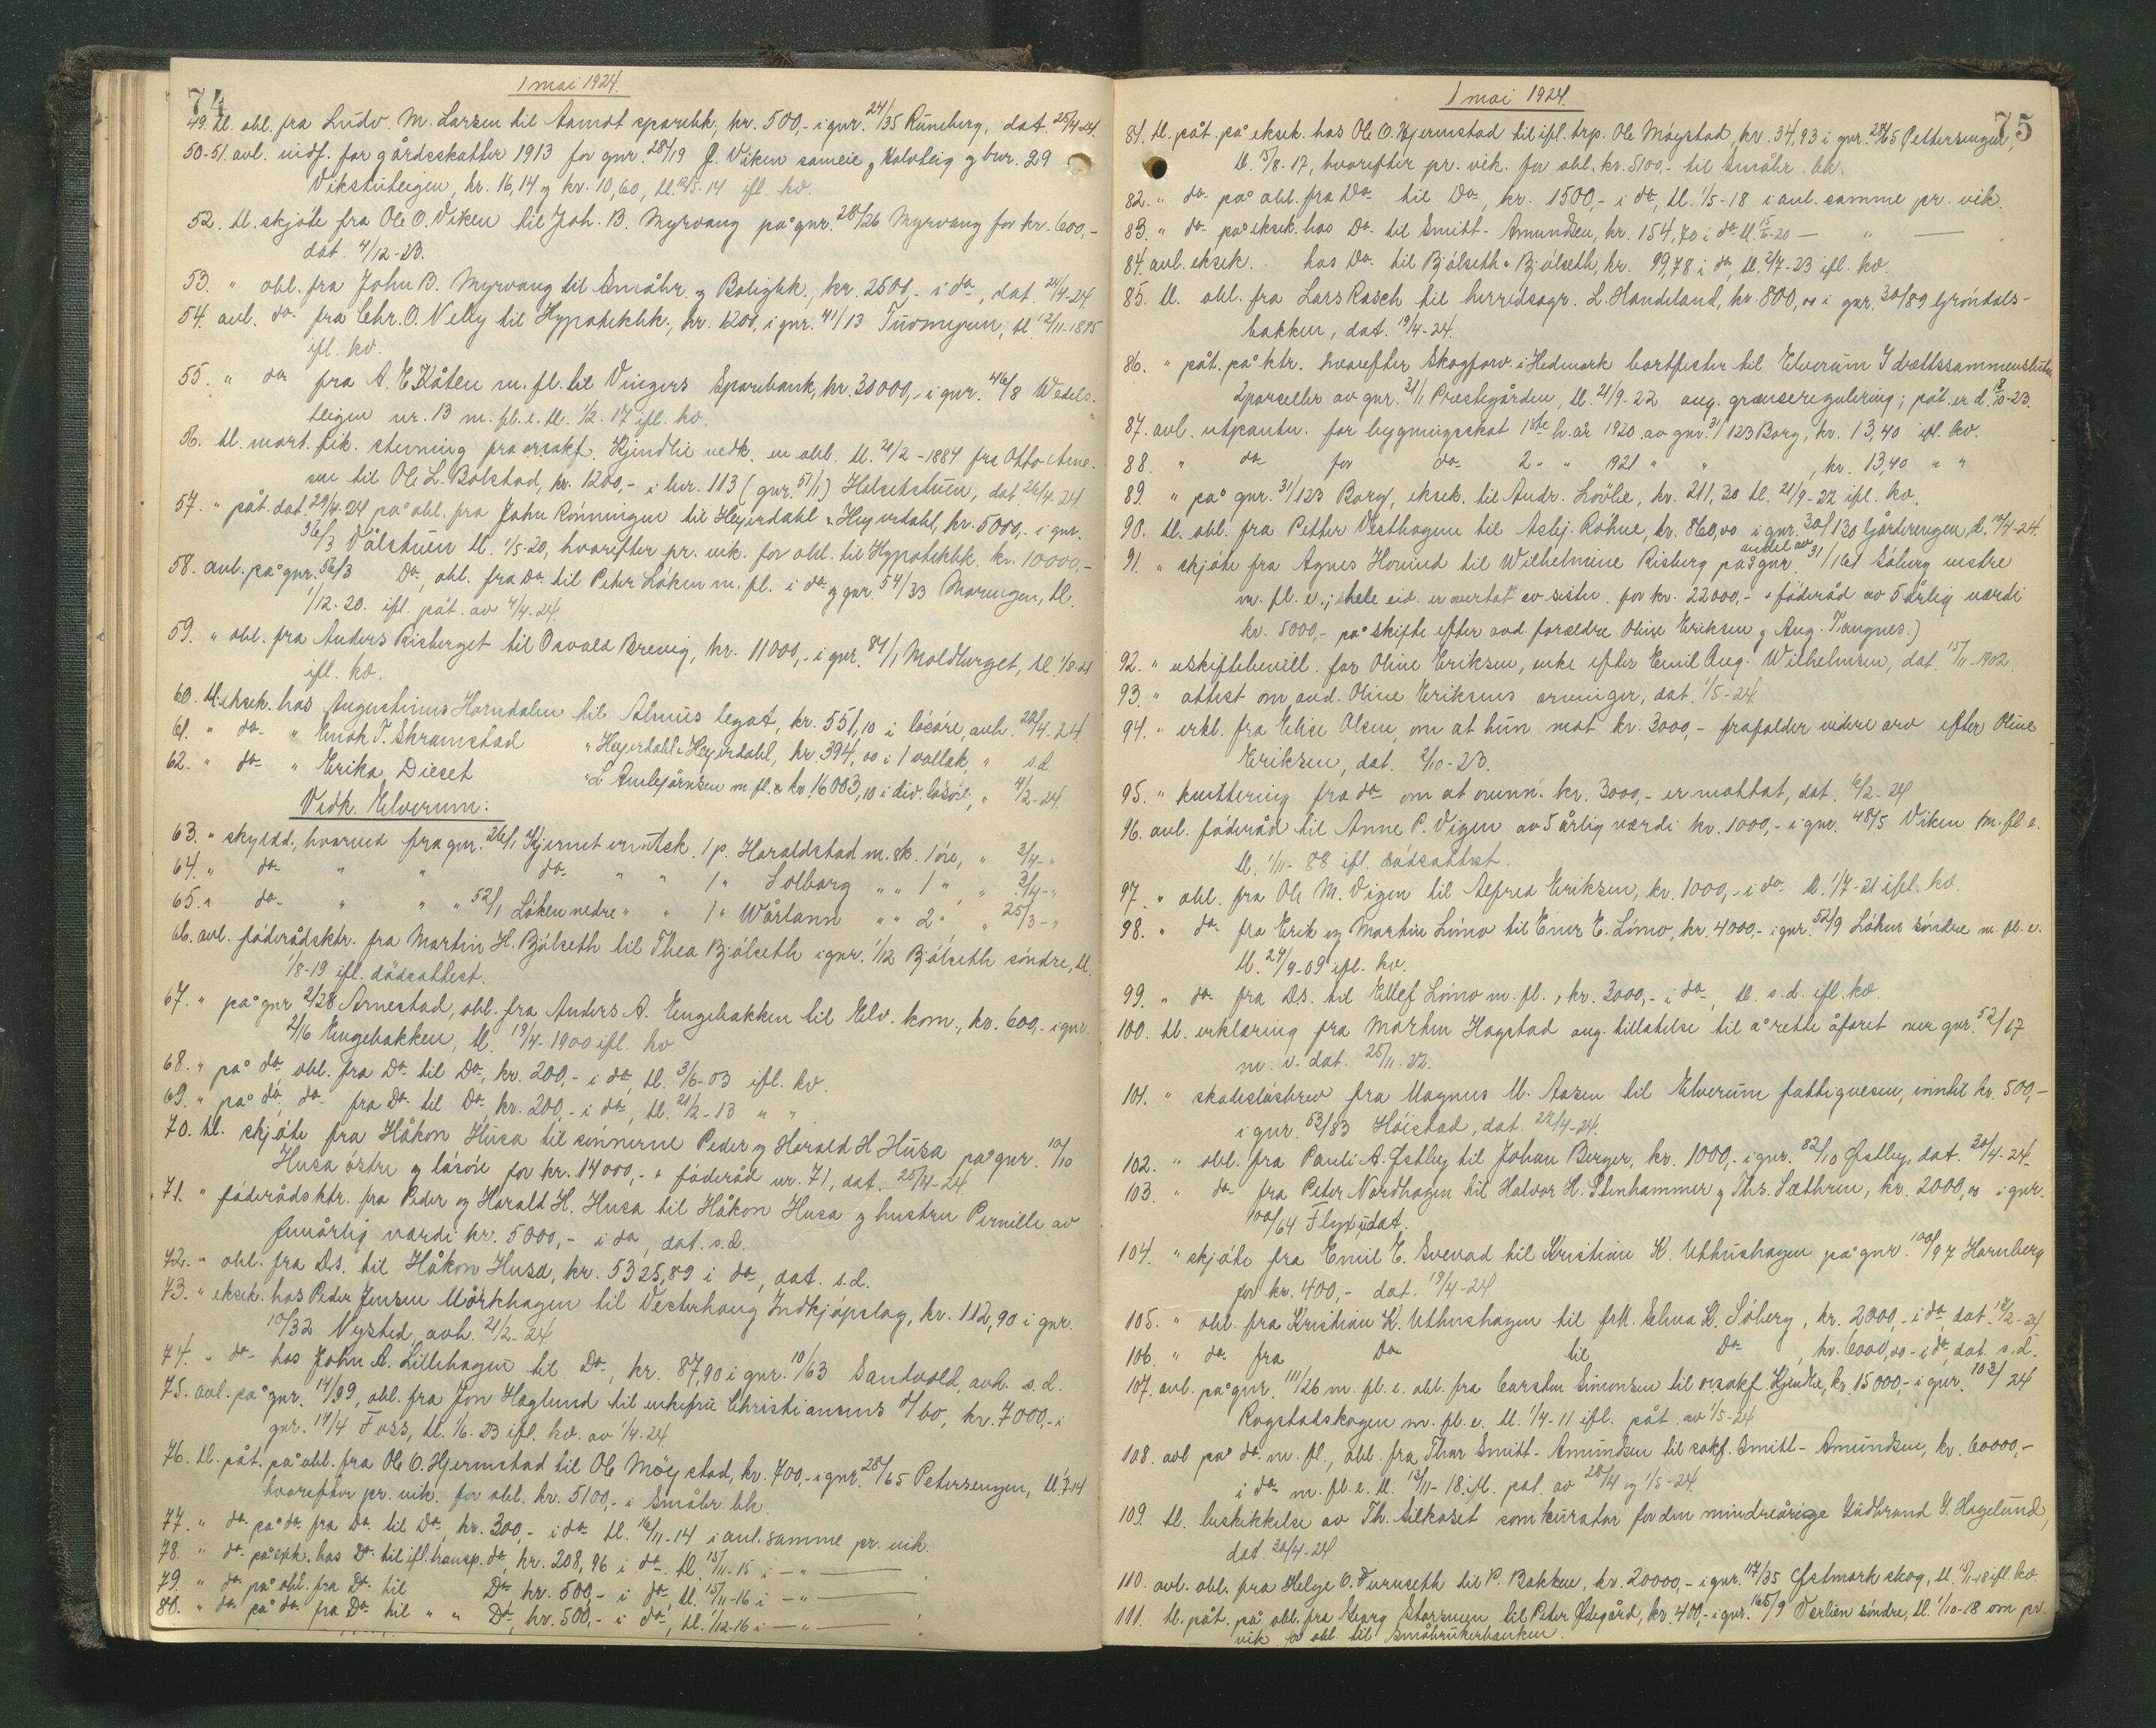 74
1 mai 1924.
49. tl. obl. fra Ludv. M. Larsen til Aamot sparebk., kr. 500,- i gnr. 24/35 Runeberg, dat. 25/4-24.
50-51. avl. utlf. for gårdsskatter 1913 for gnr. 28/19 J. Viken sameie, Kalvteig og bnr. 29
Vikstuteigen, kr. 16,14 og kr. 10,60, tl. 14 ifl. kv.
52. tl. skjøte fra Ole O. Viken til Joh. B. Myrvang på gnr. 28/26 Myrvang for kr. 600,-
dat. 4/12-23.
53. " obl. fra John B. Myrvang til Småbr. og Boligbk., kr. 2500,- i do, dat. 24/4-24
54. avl. do fra Chr. O. Velby til Hypotekbk., kr. 1200, i gnr. 41/13 Tuvmyren, tl. 12/11-1895
ifl. kv.
55. " do fra A. E. Kåten m. fl. til Vingers Sparebank, kr. 30000,- i gnr. 46/8 Wedels-
teigen nr. 13 m. fl. e. tl. 1/2-17 ifl. kv.
56. tl. mort. fik. stevning fra orsakf. Kjindlie vedk. en obl. tl. 21/2-1884 fra Otto Arne-
sen til Ole L. Bolstad, kr. 1200,- i lnr. 113 (gnr. 51/1) Halsetstuen, dat. 26/4-24.
57. " påt. dat. 29/4-24 på obl. fra John Rønningen til Heyerdahl & Heyerdahl, kr. 5000,- i gnr.
56/3 Vålstuen tl. 1/5-20, hvorefter pr. vik. for obl. til Hypotekbk. kr. 10000,-
58. avl. på gnr. 56/3 Do, obl. fra Do til Peter Løken m. fl. i do og gnr. 54/33 Morengen, tl.
1/12-20. ifl. påt. av 4/4-24.
59. " obl. fra Anders Risberget til Osvald Brevig, kr. 11000,- i gnr. 84/1 Moldberget, tl. 1/8-21
ifl. kv.
60. tl. eksek. hos Augustinus Horndalen til Almüs legat, kr. 551,10 i løsøre, avh. 22/4-24
61. " do " Enok T. Skramstad " Heyerdahl & Heyerdahl, kr. 394,00 i 1 vallak, " s.d.
62. " do " Erika Dieset " L. Ambjørnsen m. fl. & kr. 16003,10 i div. løsøre, " 4/2-24
Vedk. Elverum:
63. " skyldd., hvorved fra gnr. 26/1 Kjernet er utsk. 1 p. Haraldstad m. sk. 1 øre, " 3/4-"
64. " do " " do " " 1 " Solborg " " 1 ", " 3/4-"
65. " do " " " 52/1 Løken nedre " " 1 " Wårtann " " 2 ", " 25/3-"
66. avl. føderådsktr. fra Martin H. Bjølseth til Thea Bjølseth i gnr. 1/12 Bjølseth søndre, tl.
1/8-19 ifl. dødsattest.
67. " på gnr. 2/28 Arnestad, obl. fra Anders A. Engebakken til Elv. kom., kr. 600,- i gnr.
2/16 Engebakken, tl. 19/4-1900 ifl. kv.
68. " på do obl. fra Do til Do, kr. 200,- i do, tl. 3/6-03 ifl. kv.
69. " på do, do fra Do til Do, kr. 200,- i do, tl. 21/2-13 " "
70. tl. skjøte fra Håkon Husa til sønnerne Peder og Harald H. Husa på gnr. 10/10
Husa østre og løsøre for kr. 14000,- + føderåd nr. 71, dat. 25/4-24
71. " føderådsktr. fra Peder og Harald H. Husa til Håkon Husa og hustru Pernille av
femårlig værdi kr. 5000,- i do, dat. s.d.
72. " obl. fra Ds. til Håkon Husa, kr. 5325,89 i do, dat. s.d.
73. " eksek. hos Peder Jensen Mørkhagen til Vesterhaug Indkjøpslag, kr. 112,90 i gnr.
10/32 Nysted, avh. 21/2-24
74. " do hos John A. Lillehagen til Do, kr. 87,90 i gnr. 10/63 Sandvold, avh. s.d.
75. avl. på gnr. 14/99, obl. fra Jon Haglund til enkefru Christiansens d/bo, kr. 7000,- i
gnr. 14/4 Foss, tl. 1/6-23 ifl. kv. av 1/4-24.
76. tl. påt. på obl. fra Ole O. Hjermstad til Ole Møystad, kr. 700,- i gnr. 28/65 Petersengen, tl. 14
hvorefter pr. vik. for obl. kr. 5100,- i Småbr. bk.
77. " do på do fra Do til Do, kr. 300,- i do tl. 16/11-14 i anl. samme pr. vik.
78. " do på eksk. hos Do til ifl. transp. do, kr. 208,96 i do tl. 15/11-15 i — " —
79. " do på obl. fra Do til Do kr. 500,- i do, tl. 15/11-16 i — " —
80. " do på do fra Do til " " Do, kr. 500,- i do, tl. 1/12-16 i — " —
75
1 mai 1924.
81. tl. påt. på eksek. hos Ole O. Hjermstad til ifl. trp. Ole Møystad, kr. 34,93 i gnr. 28/65 Pettersengen,
tl. 15/8-17, hvorefter pr. vik. for obl. kr. 5100,- til Småbr. bk.
82. " do på obl. fra Do til Do, kr. 1500,- i do, tl. 1/5-18 i anl. samme pr. vik.
83. " do på eksek. hos Do til Smitt-Amundsen, kr. 154,70 i do tl. 20 — " —
84. avl. eksek. hos Do til Bjølseth & Bjølseth, kr. 99,78 i do, tl. 2/7-23 ifl. kv.
85. tl. obl. fra Lars Rasch til herredsagr. L. Handeland, kr. 800,00 i gnr. 30/89 Grøndals-
bakken, dat. 19/4-24.
86. " påt. på ktr. hvorefter Skogforv. i Hedmark bortfester til Elverum Idrættssammenslutn.
2 parseller av gnr. 31/1 Prestegården, tl. 21/9-22 ang. grænseregulering; påt. er d. 8/10-23.
87. avl. utpantn. for bygningsskat 1ste h. år 1920 av gnr. 31/123 Borg, kr. 13,40 ifl. kv.
88. " do for do 2 " " 1921 " " , kr. 13,40 " "
89. " på gnr. 31/123 Borg, eksek. til Andr. Løvlie, kr. 211,30 tl. 21/9-22 ifl. kv.
90. tl. obl. fra Petter Vesthagen til Asbj. Røhne, kr. 860,00 i gnr. 30/130 Gjårderengen, d. 19/4-24.
91. " skjøte fra Agnes Hovind til Wilhelmine Risberg på andel av gnr. 31/161 Søberg vestre
m. fl. e.; (hele eid. er overtat av sistn. for kr. 22000,- + føderåd av 5 årlig værdi
kr. 5000,- på skifte efter avd. forældre Oline Eriksen og Aug. Tangnes.)
92. " uskiftebevill. for Oline Eriksen, enke efter Emil Aug. Wilhelmsen, dat. 15/11-1902.
93. " attest om avd. Oline Eriksens arvinger, dat. 1/5-24.
94. " erkl. fra Elise Olsen, om at hun mot kr. 3000,- frafalder videre arv efter Oline
Eriksen, dat. 2/10-23.
95. " kvittering fra do om at ovnn. kr. 3000,- er mottat, dat. 6/2-24
96. avl. føderåd til Anne P. Vigen av 5 årlig værdi kr. 1000,- i gnr. 48/5 Viken m. fl. e.
tl. 1/11-88 ifl. dødsattest.
97. " obl. fra Ole M. Vigen til Alfred Eriksen, kr. 1000,- i do tl. 1/7-21 ifl. kv.
98. " do fra Erik og Martin Lømo til Ener E. Lømo, kr. 4000,- i gnr. 52/9 Løken søndre m. fl. e.
tl. 24/9-09 ifl. kv.
99. " do fra Ds. til Ellef Lømo m. fl., kr. 3000,- i do, tl. s.d. ifl. kv.
100. tl. erklæring fra Martin Hagstad ang. tillatelse til å rette åfaret ner gnr. 52/17
m. v. dat. 25/11-22.
101. " skadesløsbrev fra Magnus M. Aasen til Elverum fattigvesen, inntil kr. 500,-
i gnr. 53/83 Høistad, dat. 22/4-24.
102. " obl. fra Pauli A. Østby til Johan Berger, kr. 1000,- i gnr. 82/10 Østby, dat. 30/4-24.
103. " do fra Peter Nordhagen til Halvor H. Stenhammer og Ths. Sæthren, kr. 2000,00 i gnr.
100/64 udat.
104. " skjøte fra Emil E. Svevad til Kristian K. Uthushagen på gnr. 100/97 Hornberg
for kr. 400,- dat. 19/4-24.
105. " obl. fra Kristian K. Uthushagen til frk. Elma K. Søberg, kr. 2000,- i do, dat. 12/2-24
106. " do fra Do til Do, kr. 6000,00 - i do, dat. s.d.
107. avl. på gnr. 111/26 m. fl. e. obl. fra Carsten Simonsen til orsakf. Kjindlie, kr. 15000,- i gnr. 103/24
Rogstadskogen m. fl. e. tl. 1/4-11 ifl. påt. av 1/5-24
108. avl. på do m. fl., obl. fra Thor Smitt-Amundsen til sakf. Smitt-Amundsen, kr. 60000,-
i do m. fl. e. tl. 13/11-18 ifl. påt. av 28/4 og 1/5-24.
109. tl. beskikkelse av Th. Lilkaset som kurator for den mindreårige Gudbrand G. Hagelund,
dat. 30/4-24.
110. avl. obl. fra Helge O. Furuseth til P. Bakken, kr. 20000,- i gnr. 117/35 Østmark skog, tl. 15/11-18 ifl. kv.
111. tl. påt. på obl. fra Georg Storsveen til Peter Ødegård, kr. 400,- i gnr. 165/9 Værlien søndre, tl. 1/10-18 om pr.
vik. for obl. til Småbrukerbanken.